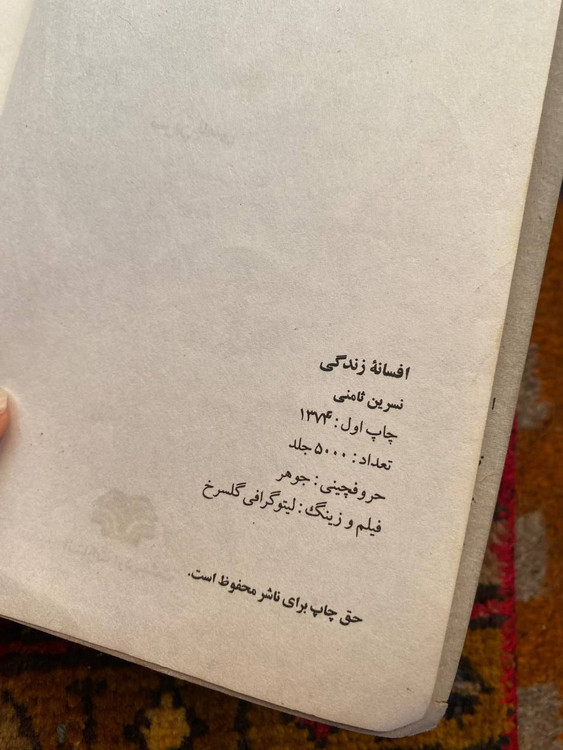 افسانهٔ زندگی
نسرین ثامنی
چاپ اول: ۱۳۷۴
تعداد: ۵۰۰۰ جلد
حروفچینی: جوهر
فیلم و زینگ: لیتوگرافی گلسرخ
حق چاپ برای ناشر محفوظ است.